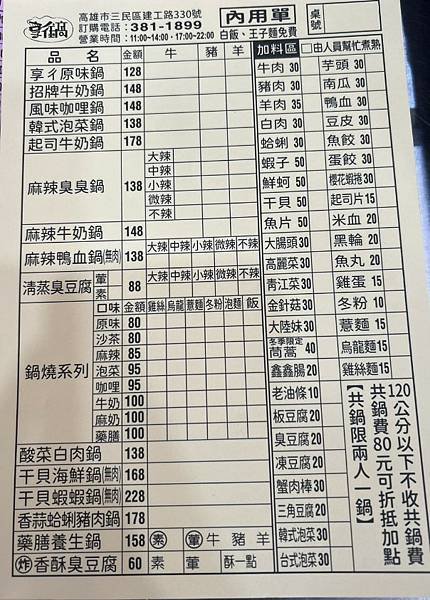 享ㄔ鍋
高雄市三民區建工路330號
訂購電話：381-1899
營業時間：11:00~14:00，17:00~22:00
內用單
桌號
白飯、王子麵免費
品名 金額 牛 豬 羊
享ㄔ原味鍋 128
招牌牛奶鍋 148
風味咖哩鍋 148
韓式泡菜鍋 138
起司牛奶鍋 178
麻辣臭臭鍋 138
大辣
中辣
小辣
微辣
不辣
麻辣牛奶鍋 148
麻辣鴨血鍋(無肉) 138 大辣 中辣 小辣 微辣 不辣
清蒸臭豆腐 葷 素 88 大辣 中辣 小辣 微辣 不辣
鍋燒系列
口味 金額 雞絲 烏龍 薏麵 冬粉 泡麵 飯
原味 80
沙茶 80
麻辣 85
泡菜 95
咖哩 95
牛奶 100
麻奶 100
藥膳 100
酸菜白肉鍋 138
干貝海鮮鍋(無肉) 168
干貝蝦蝦鍋(無肉) 228
香蒜蛤蜊豬肉鍋 178
藥膳養生鍋 158 素 葷 牛 豬 羊
炸 香酥臭豆腐 60 素 葷 酥一點
加料區
□由人員幫忙煮熟
牛肉 30
豬肉 30
羊肉 35
白肉 30
蛤蜊 30
蝦子 50
鮮蚵 50
干貝 50
魚片 50
大腸頭 30
高麗菜 30
青江菜 30
金針菇 30
大陸妹 30
冬季限定
茼蒿 40
鑫鑫腸 20
老油條 10
板豆腐 20
臭豆腐 20
凍豆腐 20
蟹肉棒 30
三角豆腐 20
韓式泡菜 30
台式泡菜 30
芋頭 30
南瓜 30
鴨血 30
豆皮 30
魚餃 30
蛋餃 30
櫻花蝦捲 30
起司片 15
米血 20
黑輪 20
魚丸 20
雞蛋 15
冬粉 10
薏麵 15
烏龍麵 15
雞絲麵 15
120公分以下不收共鍋費
共鍋費80元可折抵加點
【共鍋限兩人一鍋】